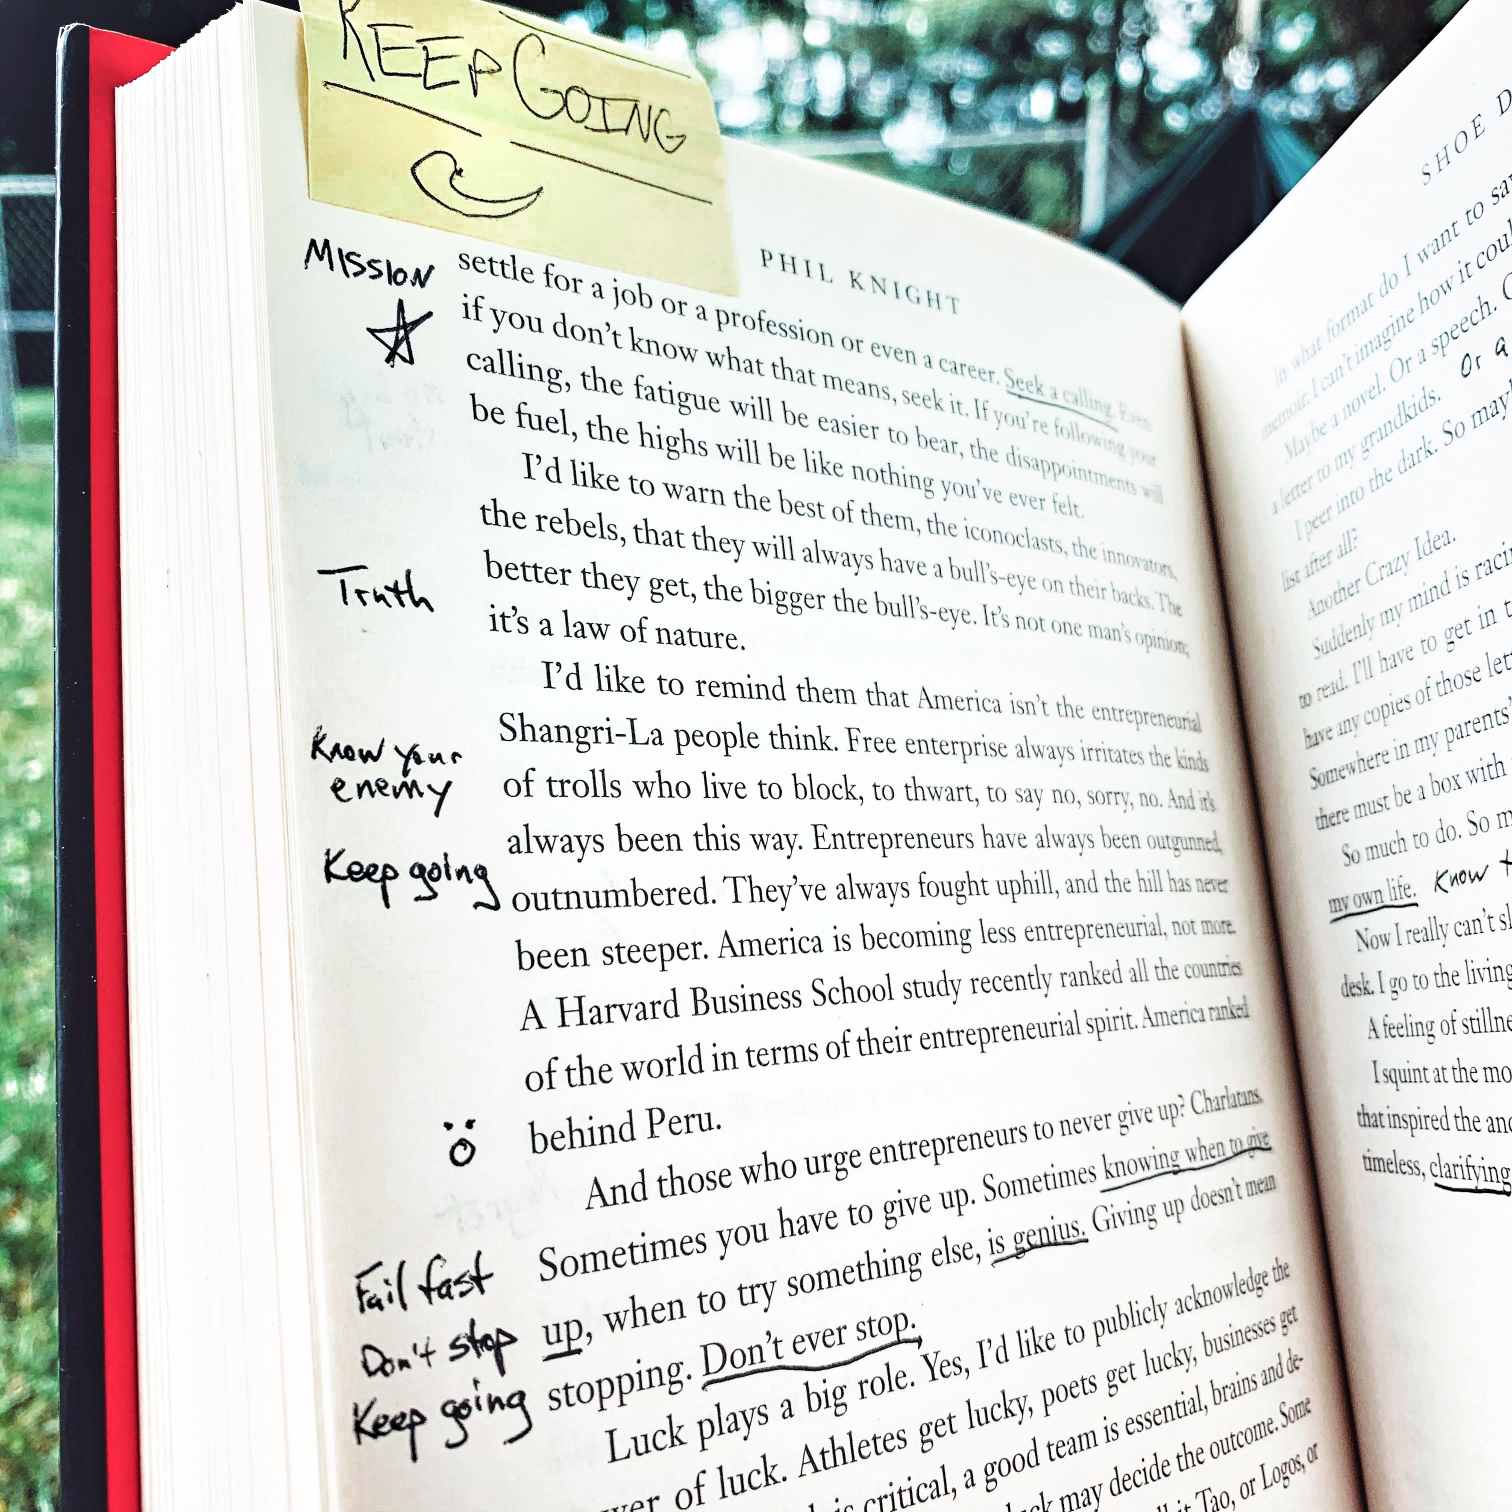 KEEP GOING
PHIL KNIGHT
Mission
settle for a job or a profession or even a career. Seek a calling. Even
if you don't know what that means, seek it. If you're following your
calling, the fatigue will be easier to bear, the disappointments will
be fuel, the highs will be like nothing you've ever felt.
I'd like to warn the best of them, the iconoclasts, the innovators,
the rebels, that they will always have a bull's-eye on their backs. The
Truth
better they get, the bigger the bull's-eye. It's not one man's opinion;
it's a law of nature.
I'd like to remind them that America isn't the entrepreneurial
Know your
enemy
Shangri-La people think. Free enterprise always irritates the kinds
of trolls who live to block, to thwart, to say no, sorry, no. And it's
always been this way. Entrepreneurs have always been outgunned,
Keep going
outnumbered. They've always fought uphill, and the hill has never
been steeper. America is becoming less entrepreneurial, not more.
A Harvard Business School study recently ranked all the countries
of the world in terms of their entrepreneurial spirit. America ranked
behind Peru.
And those who urge entrepreneurs to never give up? Charlatans.
Sometimes you have to give up. Sometimes knowing when to give
Fail fast
up, when to try something else, is genius. Giving up doesn't mean
Don't stop
stopping. Don't ever stop.
Keep going
Luck plays a big role. Yes, I'd like to publicly acknowledge the
of luck. Athletes get lucky, poets get lucky, businesses get
is critical, a good team is essential, brains and de-
may decide the outcome. Some
it Tao, or Logos, or
SHOE D
In what format do I want to say
memoir. I can't imagine how it coul
Maybe a novel. Or a speech.
a letter to my grandkids. Or a
I peer into the dark. So may
list after all?
Another Crazy Idea.
Suddenly my mind is raci
to read. I'll have to get in t
have any copies of those let
Somewhere in my parents'
there must be a box with
So much to do. So m
my own life. Know t
Now I really can't sl
desk. I go to the living
A feeling of stillne
I squint at the mo
that inspired the anc
timeless, clarifying